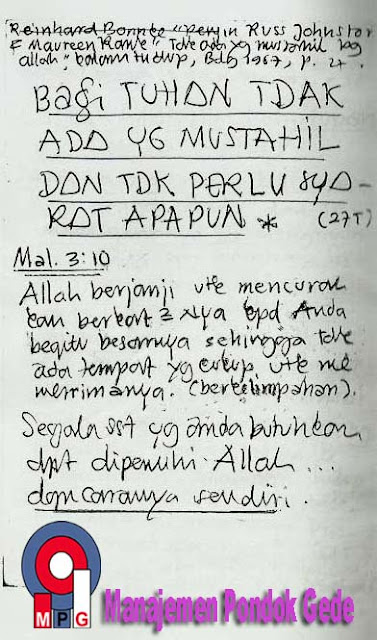 Reinhard Bonnke "Pergin Russ Johnston
& Maureen Rank" Tdk ada yg mustahil bg
allah", kalam hidup, Bdg 1987, p. 27.
BAGI TUHAN TDAK
ADA YG MUSTAHIL
DAN TDK PERLU SYA-
RAT APAPUN * (27T)
Mal. 3:10
Allah berjanji utk mencurah
kan berkat 2 Nya kpd Anda
begitu besarnya sehingga tdk
ada tempat yg cukup utk me
merimanya. (berkelimpahan).
Segala sst yg anda butuhkan
dpt dipenuhi Allah...
dgn caranya sendiri.
MPG
Manajemen Pondok Gede